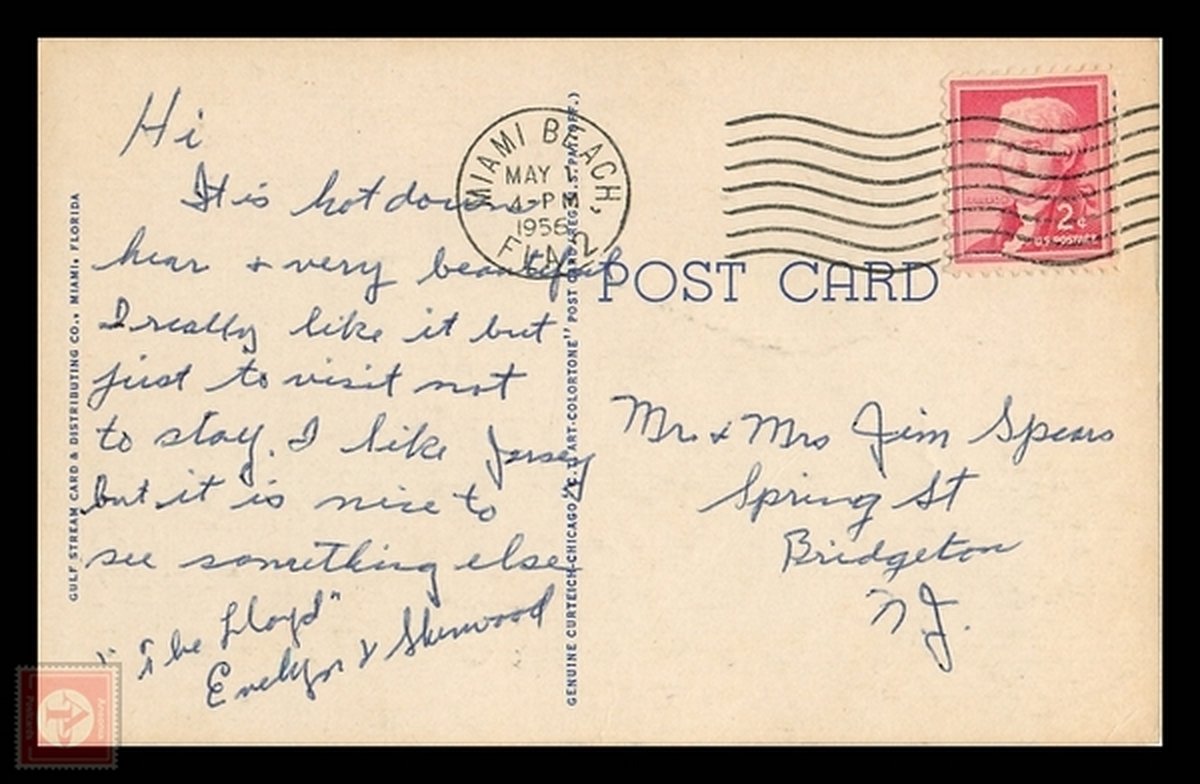 Hi
It is hot down
hear & very beautiful
I really like it but
just to visit not
to stay. I like Jersey
but it is nice to
see something else
"The Lloyd"
Evelyn & Sherwood
GULF STREAM CARD & DISTRIBUTING CO., MIAMI, FLORIDA
GENUINE CURTEICH-CHICAGO "C.T. ART-COLORTONE" POST CARD (REG. U.S. PAT. OFF.)
MIAMI BEACH,
MAY
4-PM
1956
FLA. 2
2¢
U.S. POSTAGE
POST CARD
Mr. & Mrs Jim Spears
Spring St
Bridgeton
N.J.